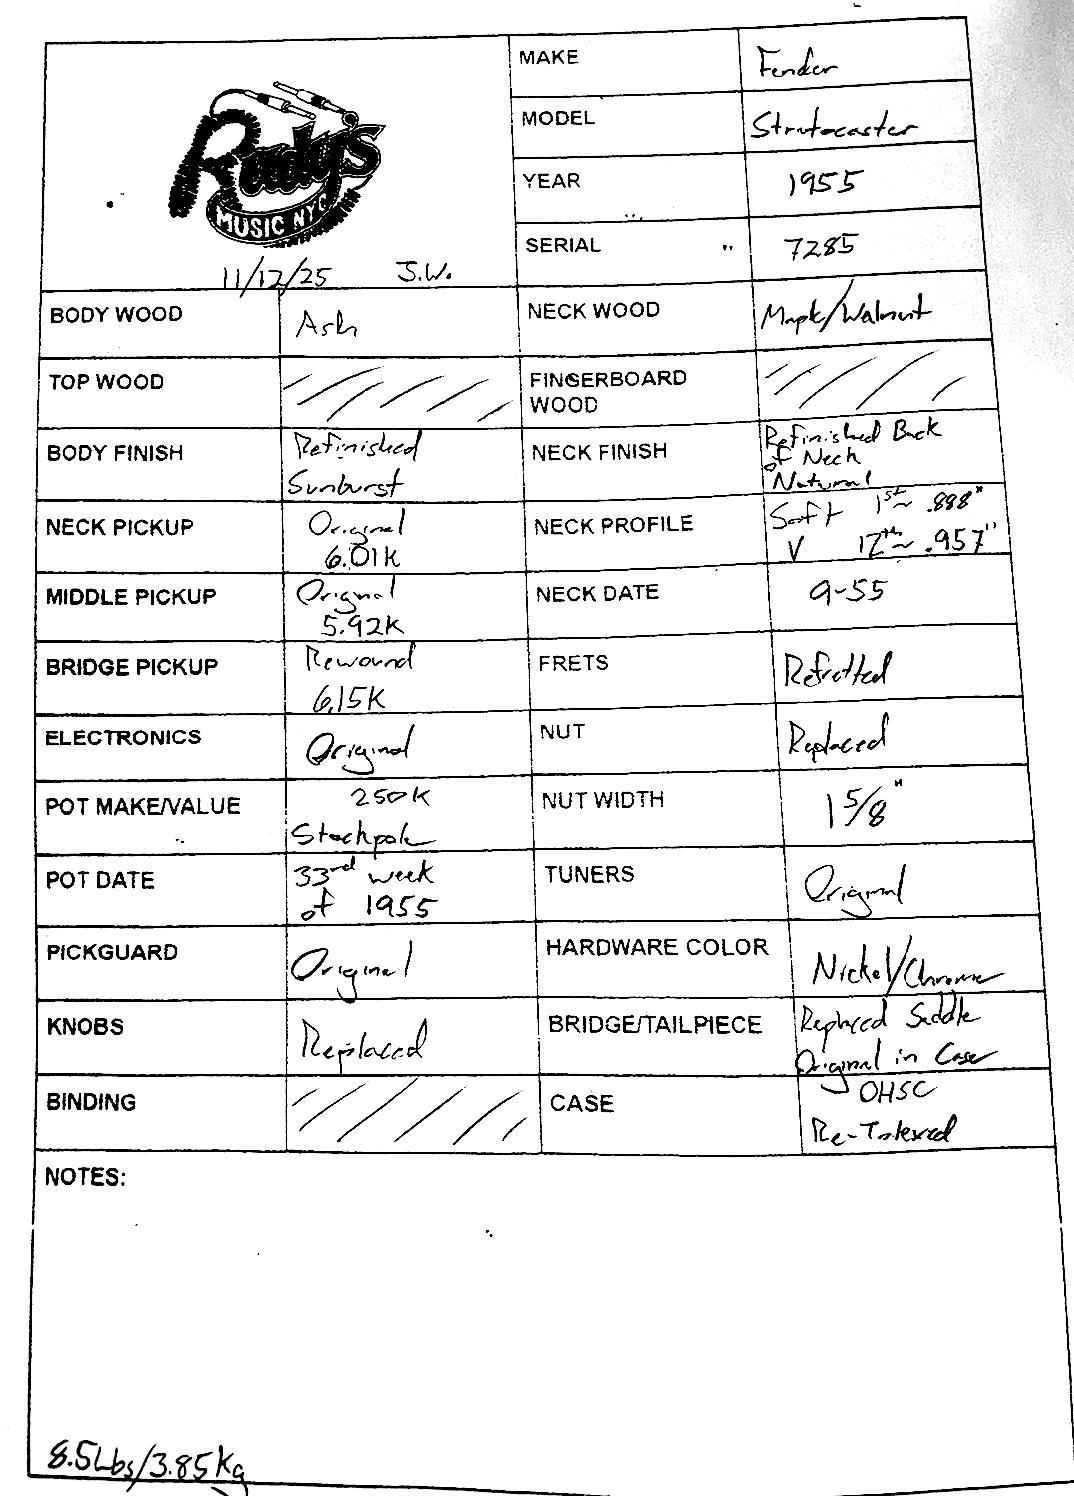 MAKE
Fender
Rudy's
MUSIC NYC
MODEL
Stratocaster
YEAR
1955
SERIAL
7285
11/12/25 J.W.
BODY WOOD
Ash
NECK WOOD
Maple/Walnut
TOP WOOD
FINGERBOARD
WOOD
BODY FINISH
Refinished
Sunburst
NECK FINISH
Refinished Back
of Neck
Natural
NECK PICKUP
Original
6.01K
NECK PROFILE
Soft 1st ~ .898"
V 12th ~ .957"
MIDDLE PICKUP
Original
5.92K
NECK DATE
9-55
BRIDGE PICKUP
Rewound
6.15K
FRETS
Refretted
ELECTRONICS
Original
NUT
Replaced
POT MAKE/VALUE
250K
Stackpole
NUT WIDTH
1 5/8"
POT DATE
33rd week
of 1955
TUNERS
Original
PICKGUARD
Original
HARDWARE COLOR
Nickel/Chrome
KNOBS
Replaced
BRIDGE/TAILPIECE
Replaced Saddle
Original in Case
BINDING
CASE
OHSC
Re-Tolexed
NOTES:
8.5Lbs/3.85Kg